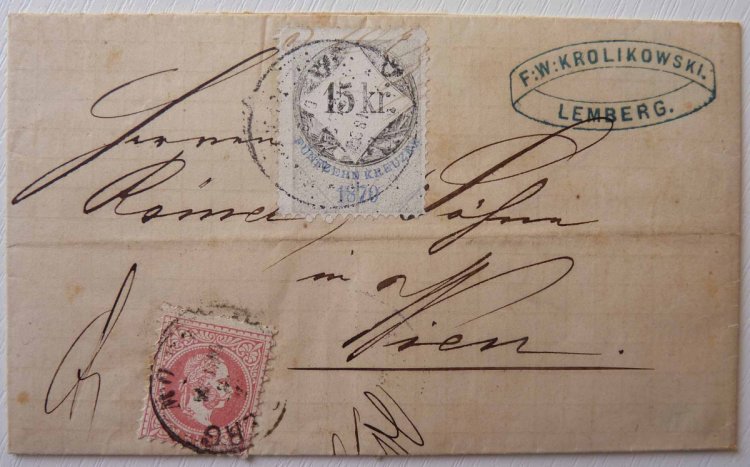 F:W:KROLIKOWSKI.
LEMBERG.
15 kr.
FÜNFZEHN KREUZER
1870
Herren
Söhne
in
Wien.